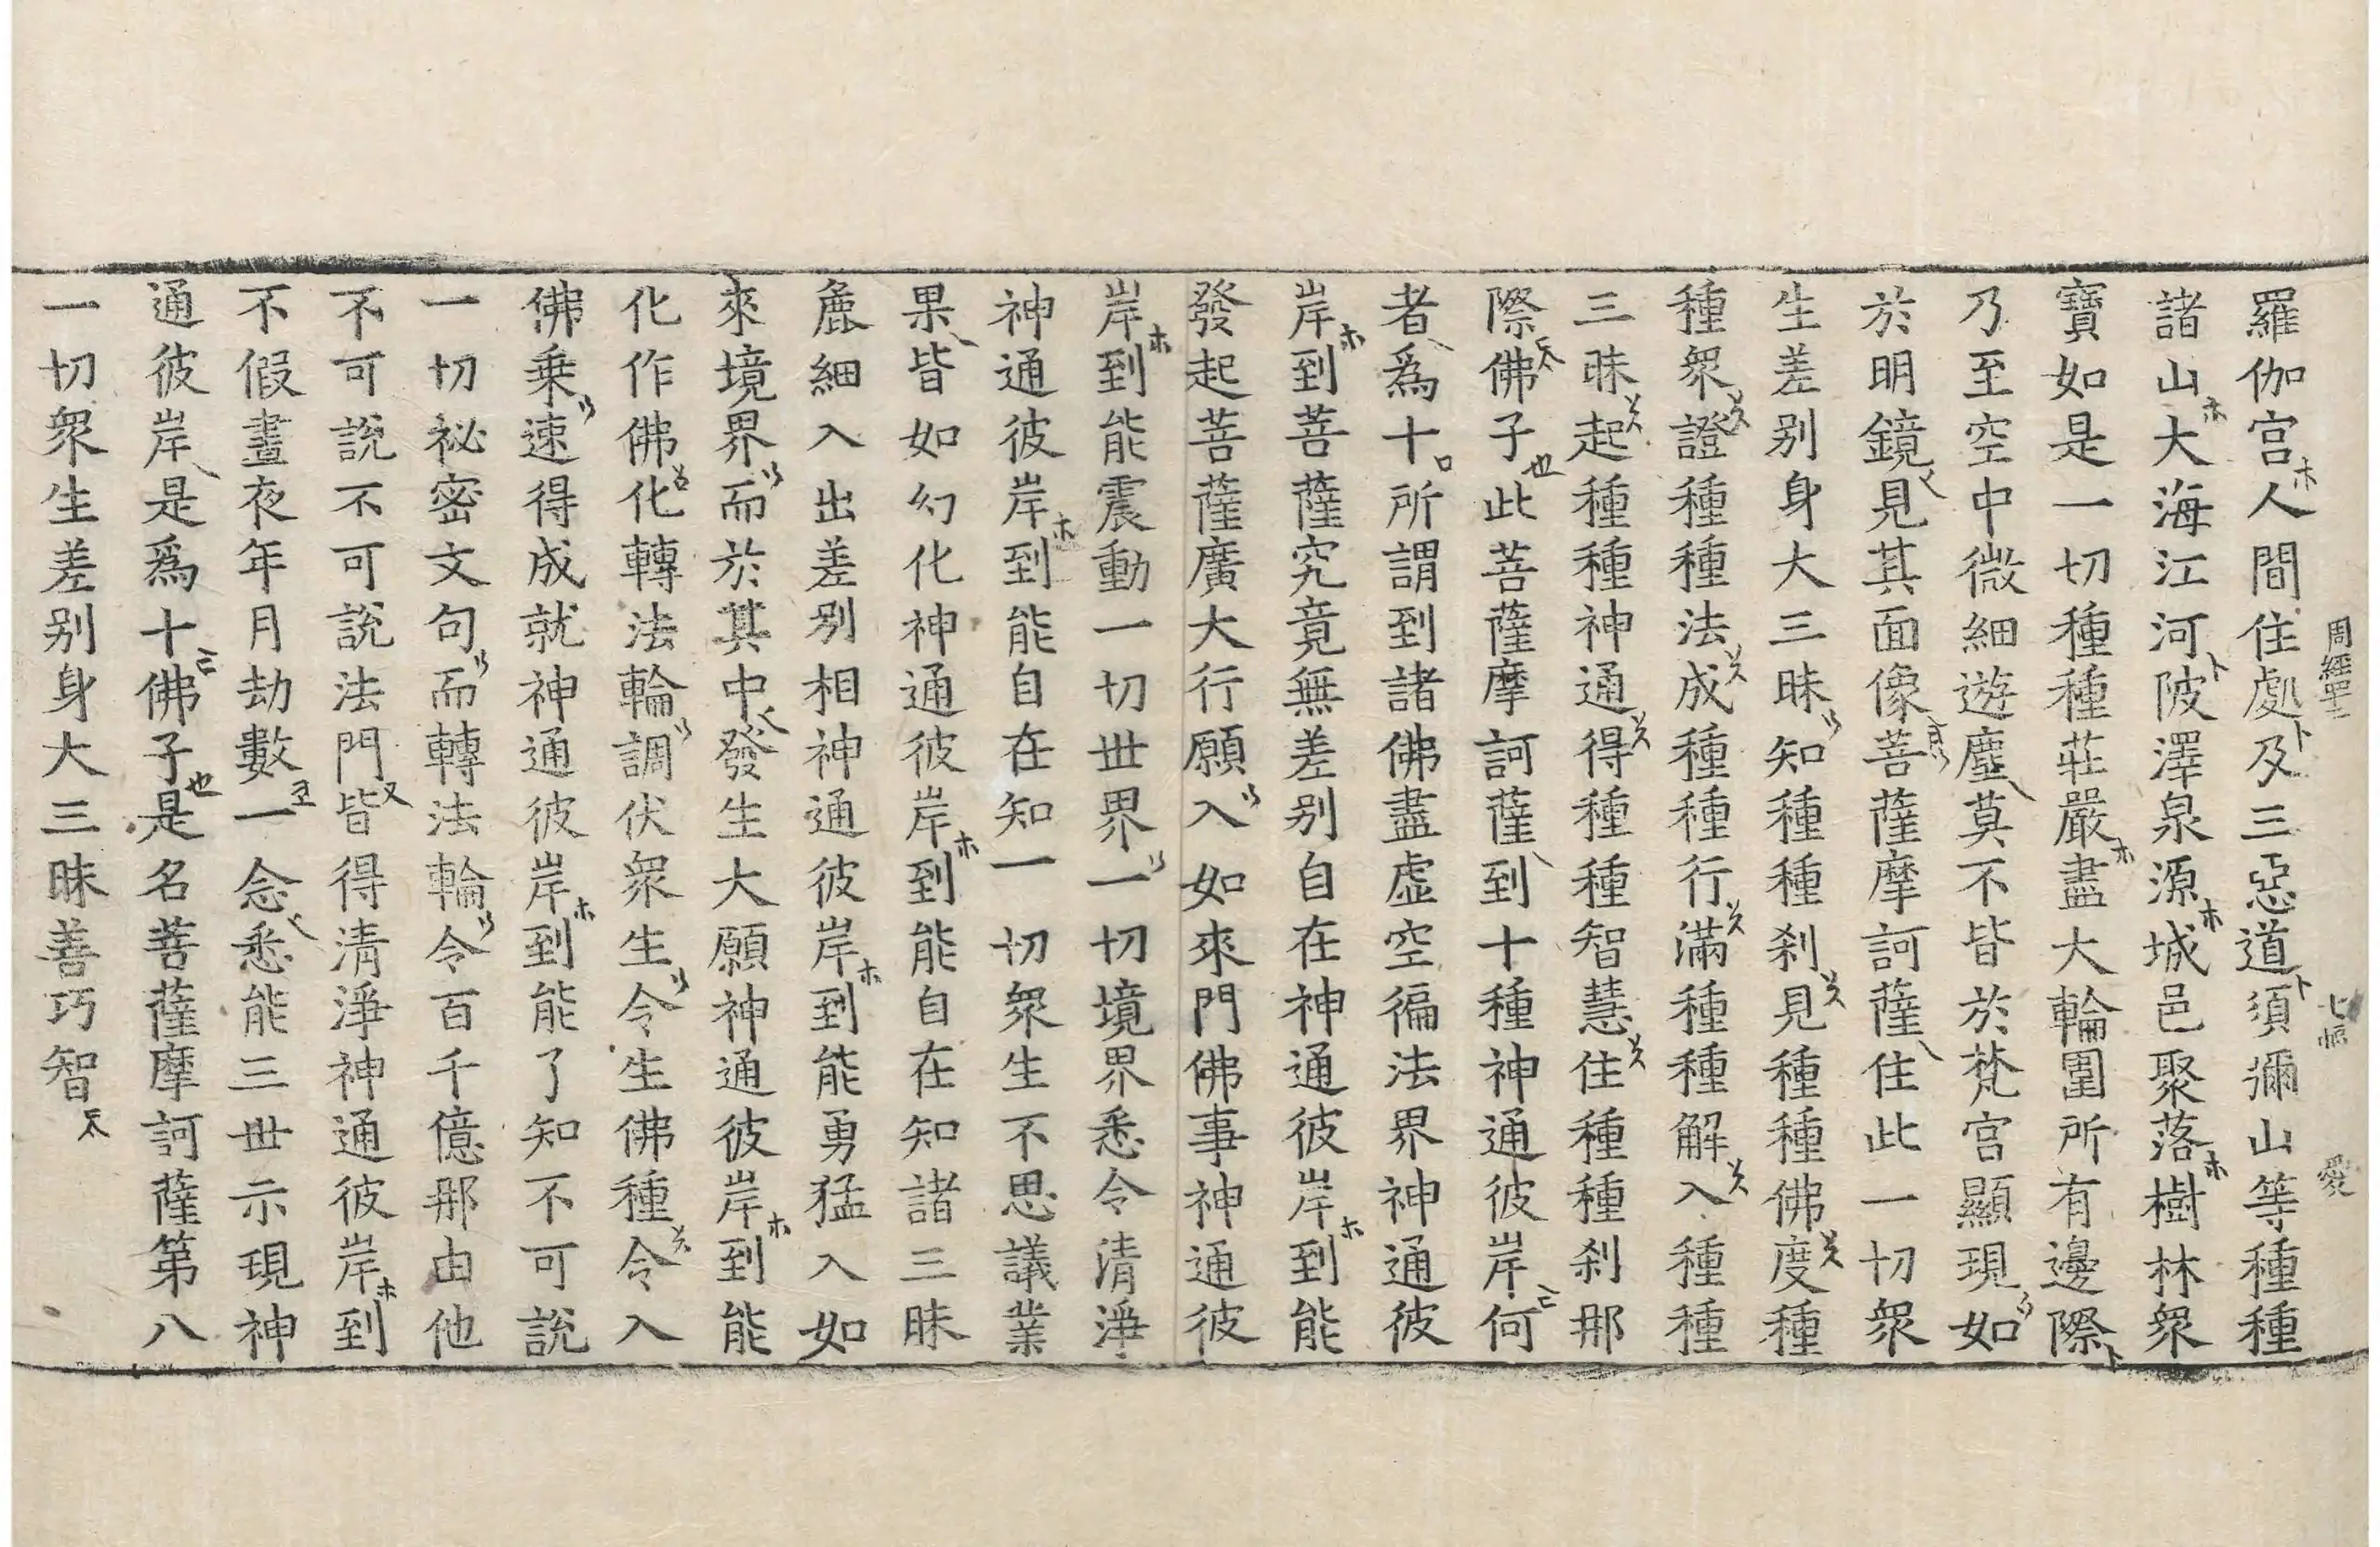 羅伽宮人間住處及三惡道須彌山等種種
諸山大海江河陂澤泉源城邑聚落樹林衆
寶如是一切種種莊嚴盡大輪圍所有邊際
乃至空中微細遊塵莫不皆於梵宮顯現如
於明鏡見其面像菩薩摩訶薩住此一切衆
生差别身大三昧知種種刹見種種佛度種
種衆證種種法成種種行滿種種解入種種
三昧起種種神通得種種智慧住種種刹那
際佛子此菩薩摩訶薩到十種神通彼岸何
者爲十所謂到諸佛盡虛空徧法界神通彼
岸到菩薩究竟無差别自在神通彼岸到能
發起菩薩廣大行願入如來門佛事神通彼
岸到能震動一切世界一切境界悉令清淨
神通彼岸到能自在知一切衆生不思議業
果皆如幻化神通彼岸到能自在知諸三昧
麁細入出差别相神通彼岸到能勇猛入如
來境界而於其中發生大願神通彼岸到能
化作佛化轉法輪調伏衆生令生佛種令入
佛乗速得成就神通彼岸到能了知不可說
一切祕密文句而轉法輪令百千億那由他
不可說不可說法門皆得清淨神通彼岸到
不假晝夜年月劫數一念悉能三世示現神
通彼岸是爲十佛子是名菩薩摩訶薩第八
一切衆生差别身大三昧善巧智